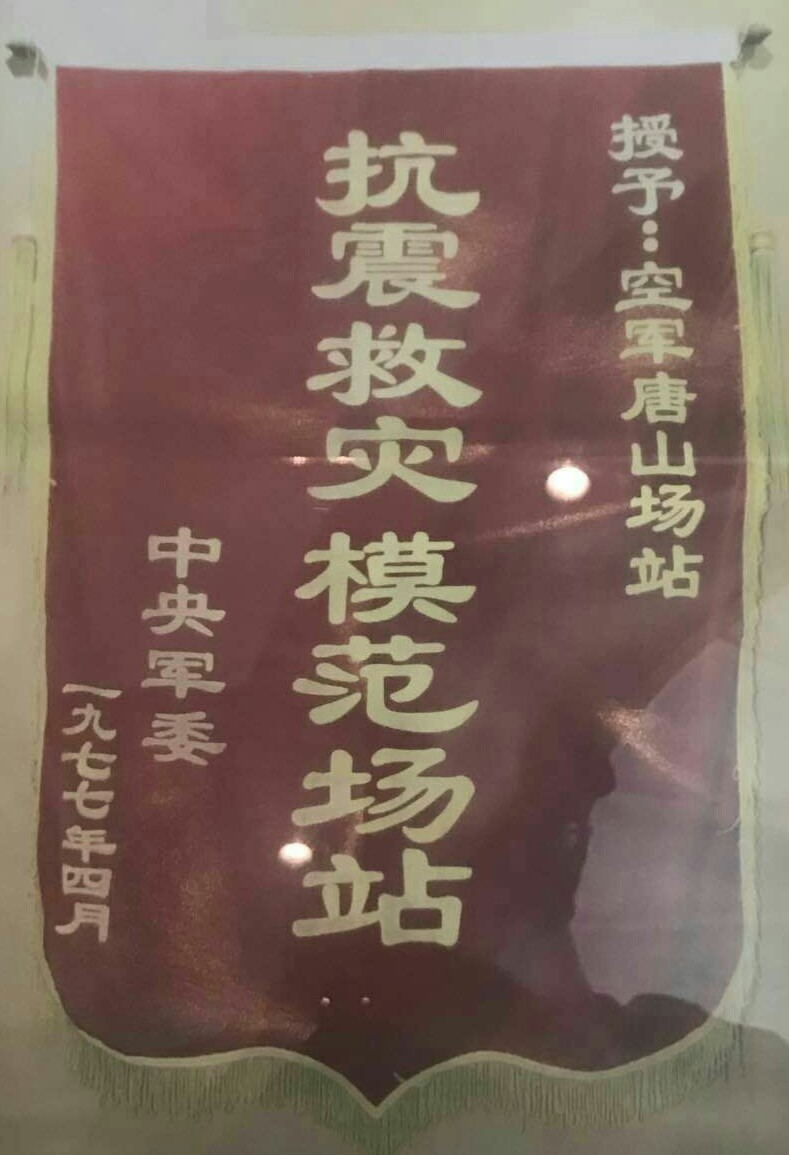 授予：空军唐山场站
抗震救灾 模范场站
中央军委
一九七七年四月